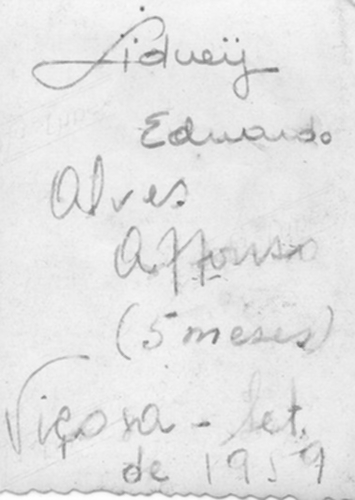 Sidneÿ
Eduardo
Alves
Affonso
(5 meses)
Viçosa - Set.
de 1959